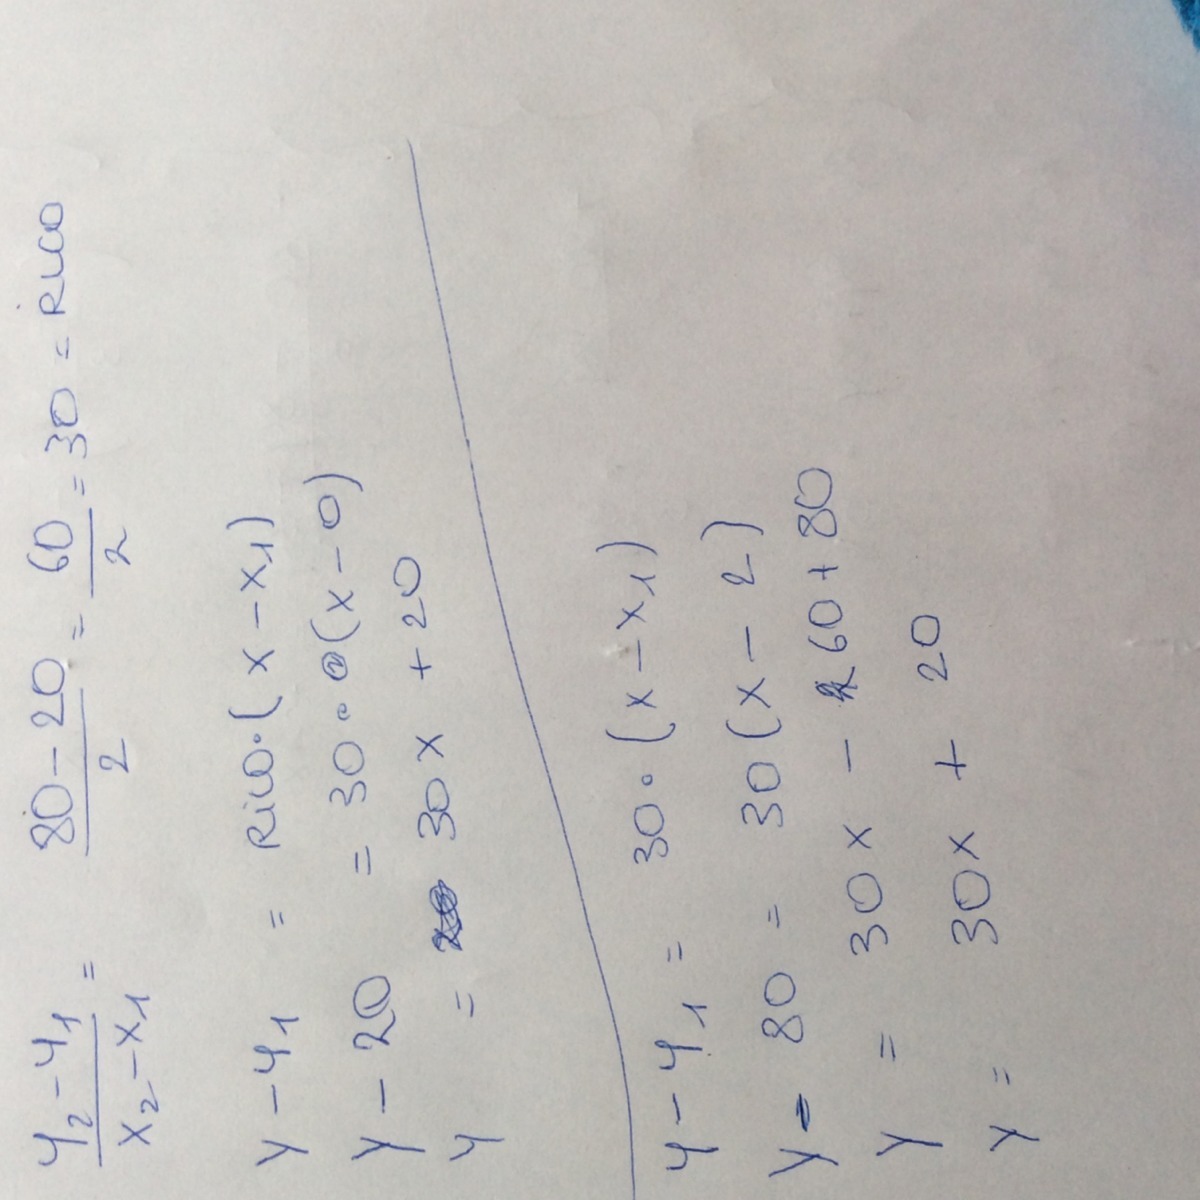 y₂ - y₁ / x₂ - x₁ = 80 - 20 / 2 = 60 / 2 = 30 = Rico
y - y₁ = Rico · (x - x₁)
y - 20 = 30 · (x - 0)
y = 30x + 20
y - y₁ = 30 · (x - x₁)
y - 80 = 30 (x - 2)
y = 30x - 60 + 80
y = 30x + 20